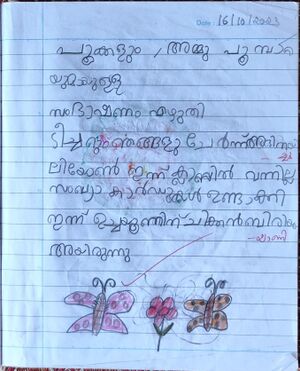 Date: 16/10/2023
പൂക്കളും, അമ്മു പൂമ്പാറ്റ
യുമായുള്ള
സംഭാഷണം എഴുതി
ടീച്ചറും ഞങ്ങളു ചേർന്ന്
ലിയോൺ ഇന്ന് ക്ലാസിൽ വന്നില്ല
സംഖ്യാ കാർഡുകൾ ഉണ്ടാക്കി
ഇന്ന് ഉച്ചയൂണിന് ചിക്കൻ ബിരിയാണി
ആയിരുന്നു